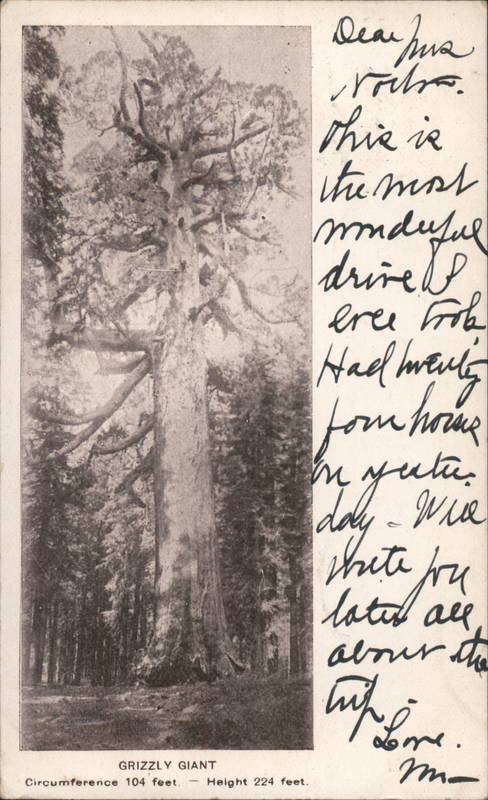 Dear Mrs
This is
the most
wonderful
drive I
ever took
Had twenty
four horses
on yester-
day - Will
write you
later all
about the
trip
Love.
GRIZZLY GIANT
Circumference 104 feet. — Height 224 feet.